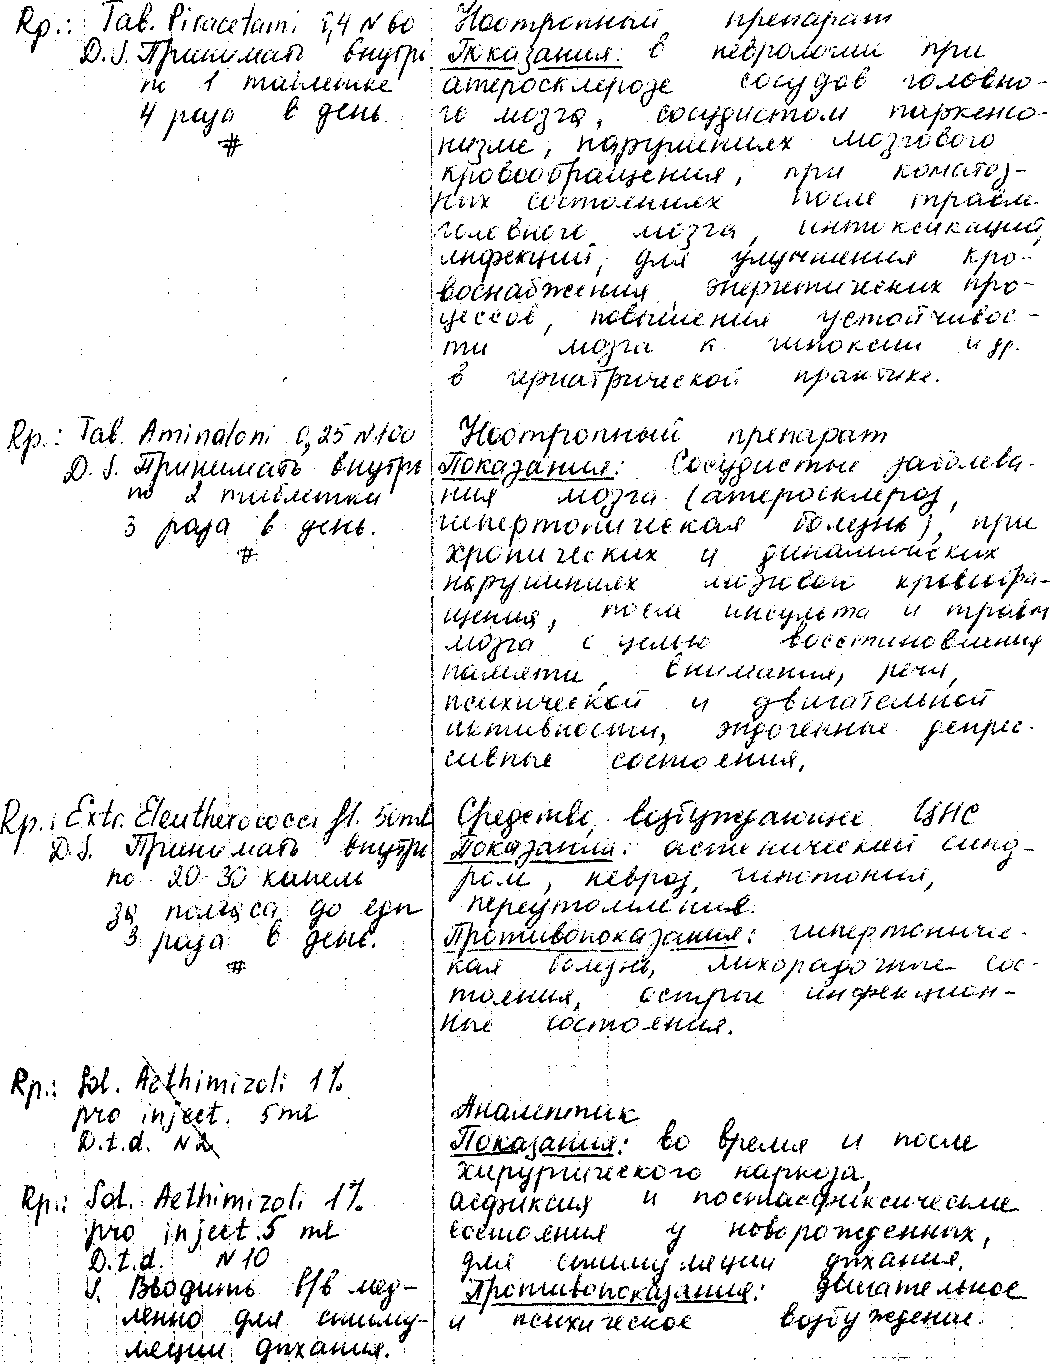 Rp.: Tab. Piracetami 0,4 N 60
D.S. Принимать внутрь
по 1 таблетке
4 раза в день.
#
Ноотропный препарат
Показания: в неврологии при
атеросклерозе сосудов головно-
го мозга, сосудистом паркенсо-
низме, нарушениях мозгового
кровообращения, при коматоз-
ных состояниях после травм
головного мозга, интоксикаций,
инфекций, для улучшения кро-
воснабжения, энергетических про-
цессов, повышения устойчивос-
ти мозга к гипоксии и др.
в гериатрической практике.
Rp.: Tab. Aminaloni 0,25 N 100
D.S. Принимать внутрь
по 2 таблетки
3 раза в день.
#
Ноотропный препарат
Показания: Сосудистые заболева-
ния мозга (атеросклероз,
гипертоническая болезнь), при
хронических и динамических
нарушениях мозгового кровообра-
щения, после инсульта и травм
мозга с целью восстановления
памяти, внимания, речи,
психической и двигательной
активности, эндогенные депрес-
сивные состояния.
Rp.: Extr. Eleutherococci fl. 50 ml
D.S. Принимать внутрь
по 20-30 капель
за полчаса до еды
3 раза в день.
#
Средство, возбуждающее ЦНС
Показания: астенический синд-
ром, невроз, гипотония,
переутомления.
Противопоказания: гипертоничес-
кая болезнь, лихорадочные сос-
тояния, острые инфекцион-
ные состояния.
Rp.: Sol. Aethimizoli 1%
pro inject. 5 ml
D.t.d. N 2
Rp.: Sol. Aethimizoli 1%
pro inject. 5 ml
D.t.d. N 10
S. Вводить в/в мед-
ленно для стиму-
ляции дыхания.
Аналептик
Показания: во время и после
хирургического наркоза,
асфиксия и постасфиксические
состояния у новорожденных,
для стимуляции дыхания.
Противопоказания: двигательное
и психическое возбуждение.